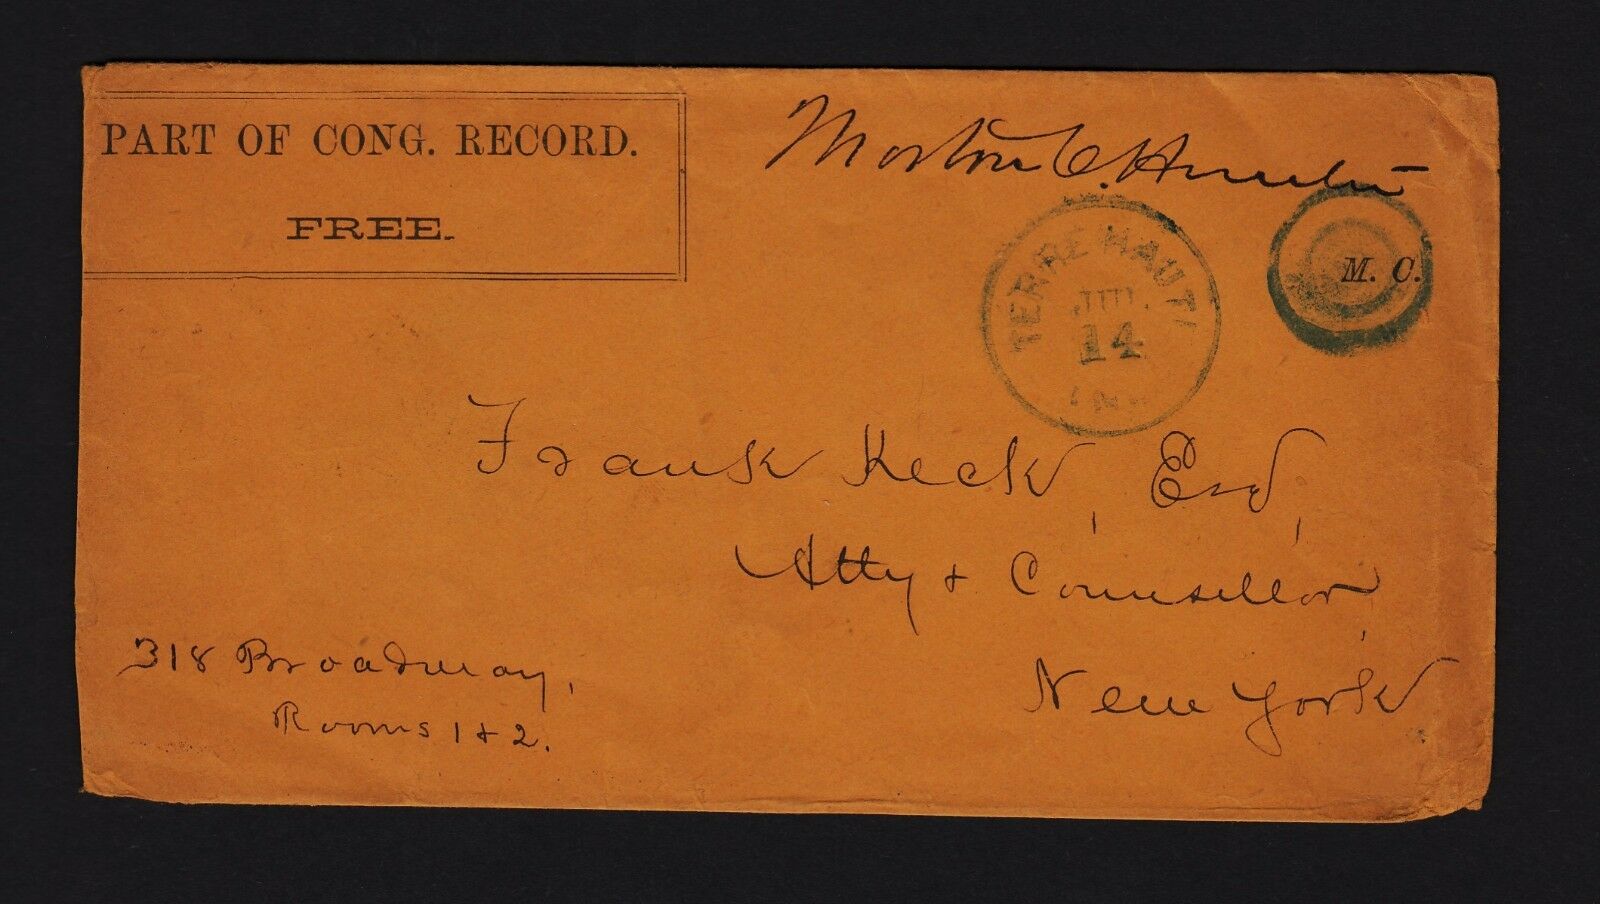 PART OF CONG. RECORD.
FREE.
Morton C. Hunter
M. C.
TERRE HAUTE
JUL
14
IND.
Frank Keck, Esq,
Atty & Counsellor,
New York
318 Broadway,
Rooms 1 & 2.